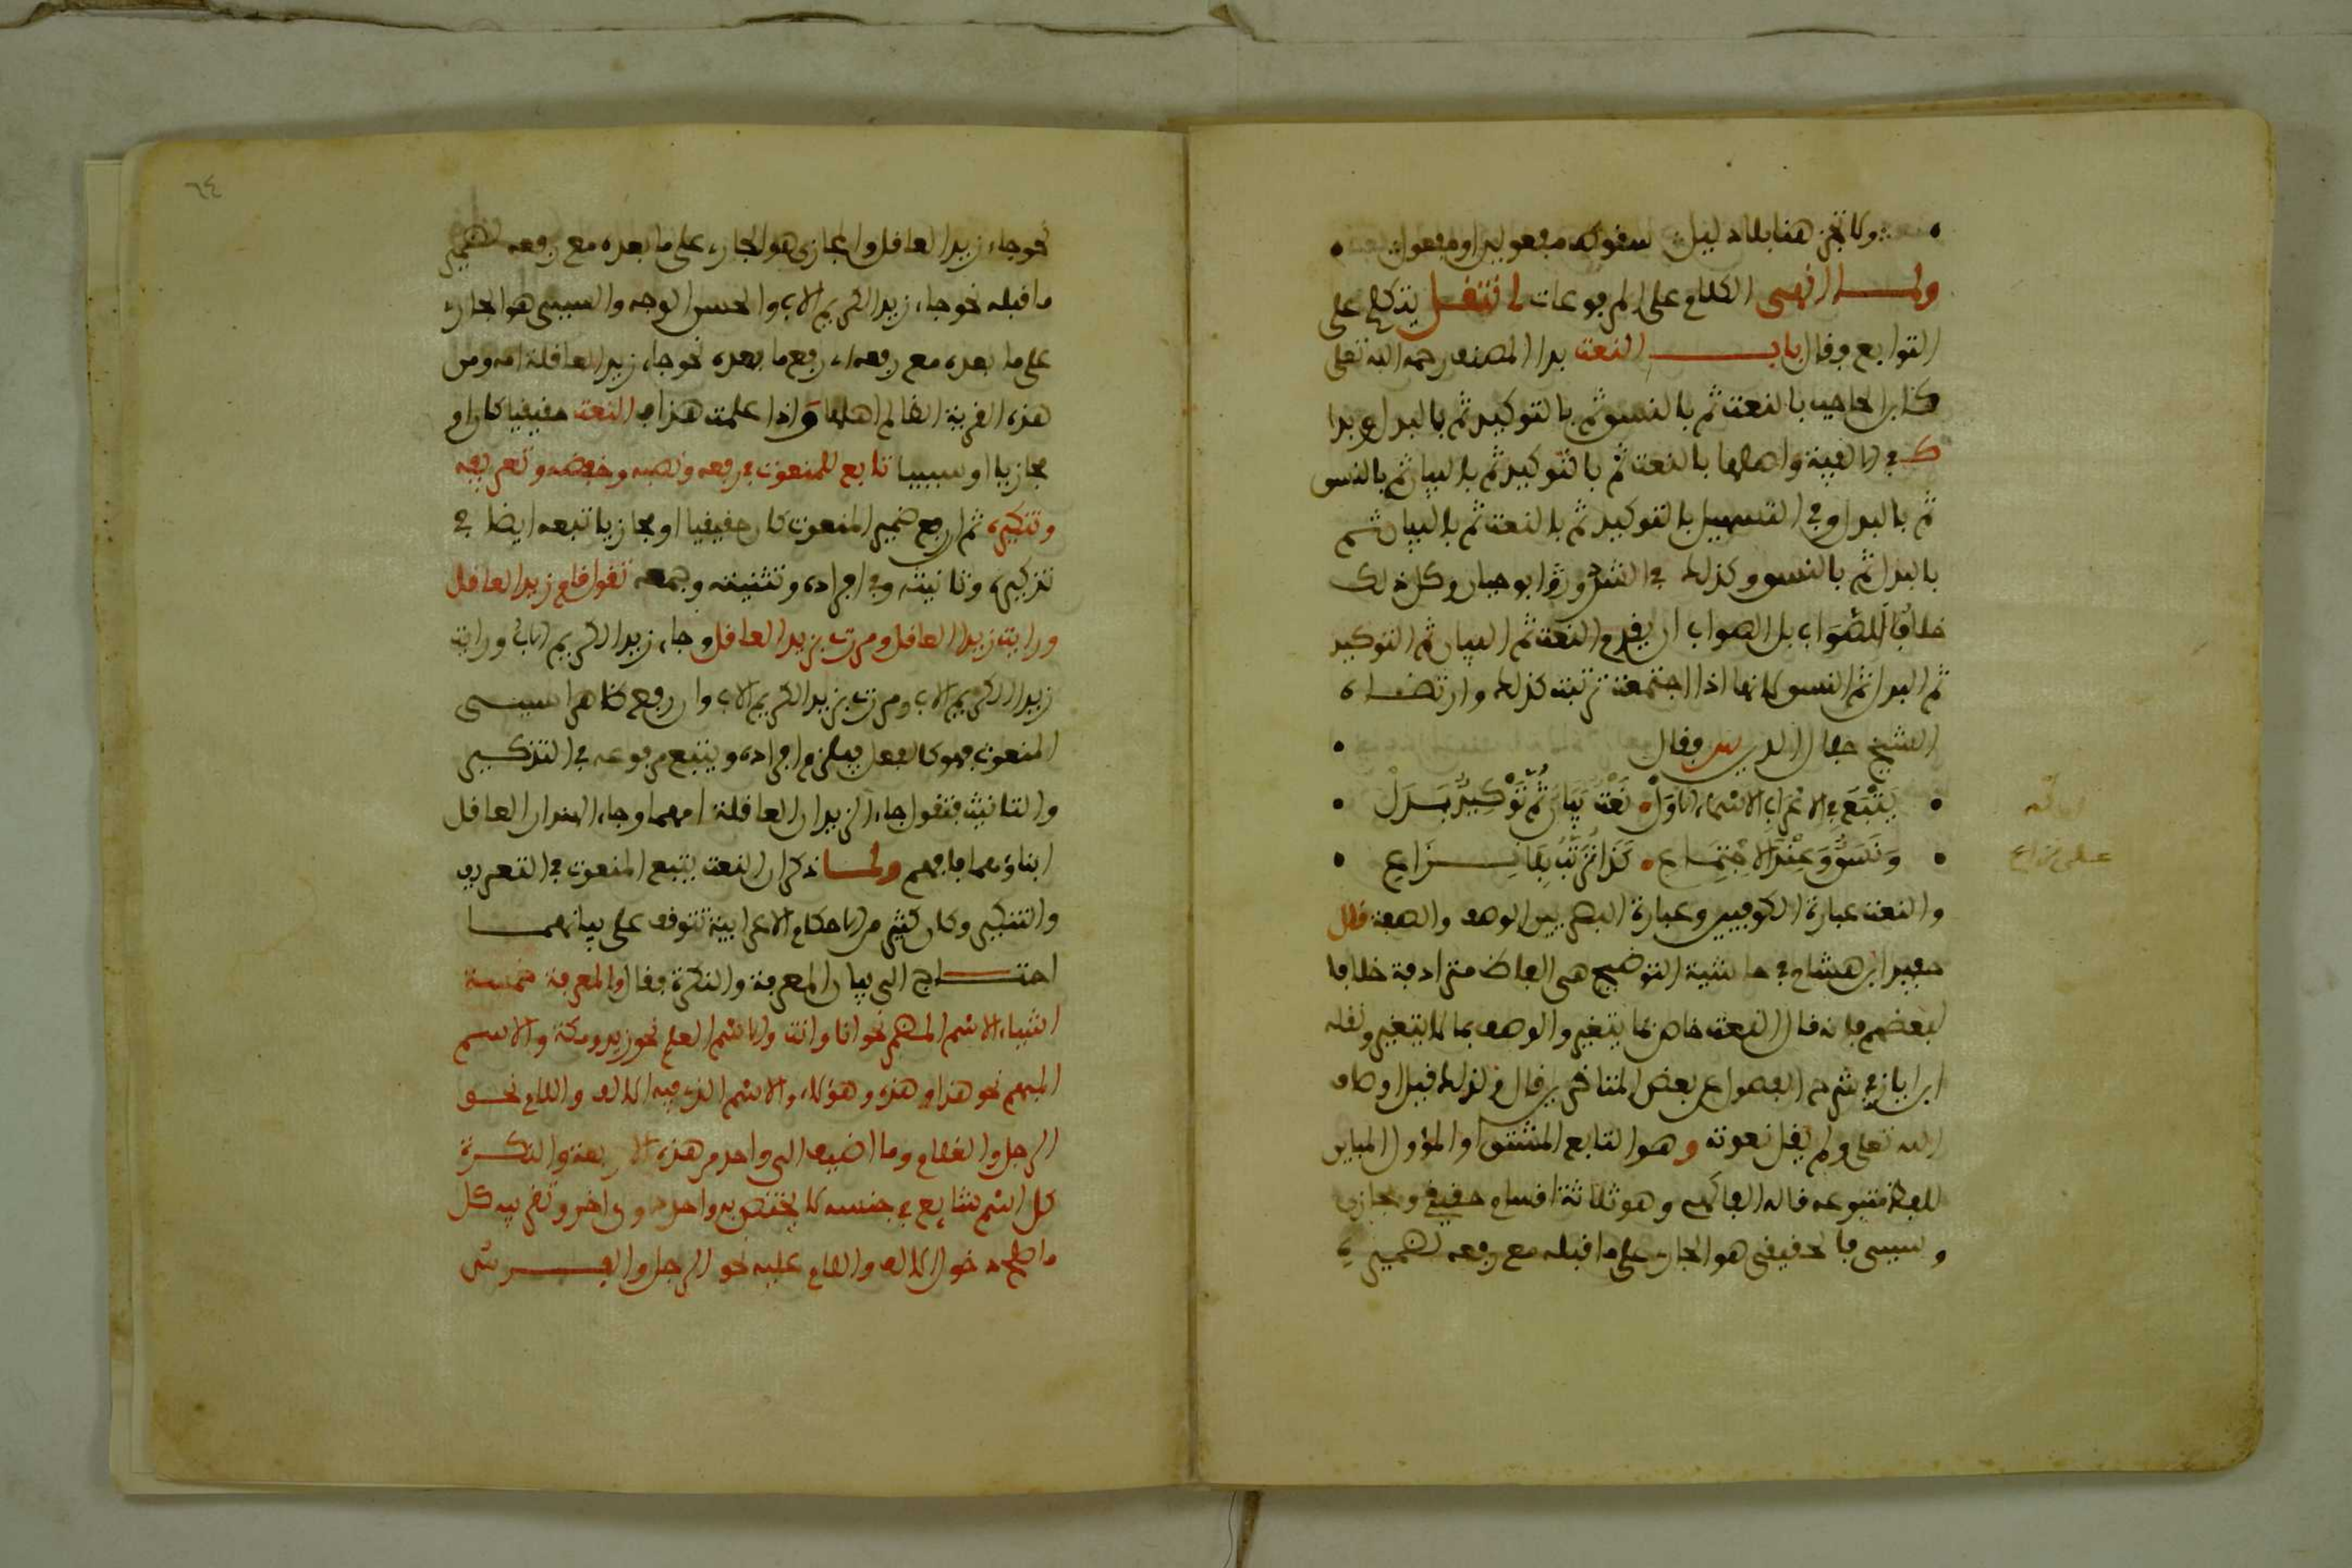 ولا تجز هنا بلا دليل سقوط مفعولين او مفعول
ولما انهى الكلام على المرفوعات انتقل يتكلم على
التوابع فقال باب النعت بدا المصنف رحمه الله تعلى
كابن الحاجب بالنعت ثم بالنسق ثم بالتوكيد ثم بالبدل وبدا
في الالفية واصلها بالنعت ثم بالتوكيد ثم بالبيان ثم بالنسق
ثم بالبدل وفي التسهيل بالتوكيد ثم بالنعت ثم بالبيان ثم
بالبدل ثم بالنسق وكذلك في الشذور وابو حيان وكل ذلك
خلافا للصواب بل الصواب ان يقدم النعت ثم البيان ثم التوكيد
ثم البدل ثم النسق لانها اذا اجتمعت رتبت كذلك وارتضاه
الشيخ جمال الدين فقال
يَتْبَعُ في الاعراب الاسماء الاول نعت بيان ثم توكيد بدل
ونسق وعند الاجتماع كذا ترتب بلا نزاع
على نزاع
والنعت عبارة الكوفيين وعبارة البصريين الوصف والصفة قال
حفيد ابن هشام في حاشية التوضيح هي الفاظ مترادفة خلافا
لبعضهم فانه قال النعت خاص بما يتغير والوصف بما لا يتغير ونقله
ابن اياز في شرح الفصول عن بعض المتاخرين قال ولذلك قيل اوصاف
الله تعلى ولم يقل نعوته وهو التابع المشتق او المؤول المباين
للفظ متبوعه قاله الفاكهي وهو ثلاثة اقسام حقيقي ومجازي
وسببي فالحقيقي هو الجاري على ما قبله مع رفعه لضميره
٦٤
نحو جاء زيد العاقل والمجازي هو الجاري على ما بعده مع رفعه لضمير
ما قبله نحو جاء زيد الكريم الاب والحسن الوجه والسببي هو الجاري
على ما بعده مع رفعه اي رفع ما بعده نحو جاء زيد العاقلة امه ومن
هذه القرية الظالم اهلها واذا علمت هذا فالنعت حقيقيا كان او
مجازيا او سببيا تابع للمنعوت في رفعه ونصبه وخفضه وتعريفه
وتنكيره ثم ان رفع ضمير المنعوت كان حقيقيا او مجازيا تبعه ايضا في
تذكيره وتانيثه وفي افراده وتثنيته وجمعه تقول قام زيد العاقل
ورايت زيدا العاقل ومررت بزيد العاقل وجاء زيد الكريم الاب ورايت
زيدا الكريم الاب ومررت بزيد الكريم الاب وان رفع ظاهرا سببي
المنعوت فهو كالفعل فيلزم افراده ويتبع مرفوعه في التذكير
والتانيث فتقول جاء الزيدان العاقلة امهما وجاء الهندان العاقل
ابناؤهما فافهم ولما ذكر ان النعت يتبع المنعوت في التعريف
والتنكير وكان كثير من الاحكام الاعرابية تتوقف على بيانهما
احتاج الى بيان المعرفة والنكرة فقال والمعرفة خمسة
اشياء الاسم المضمر نحو انا وانت والاسم العلم نحو زيد ومكة والاسم
المبهم نحو هذا وهذه وهؤلاء والاسم الذي فيه الالف واللام نحو
الرجل والغلام وما اضيف الى واحد من هذه الاربعة والنكرة
كل اسم شايع في جنسه لا يختص به واحد دون اخر وتقريبه كل
ما صلح دخول الالف واللام عليه نحو الرجل والفرس